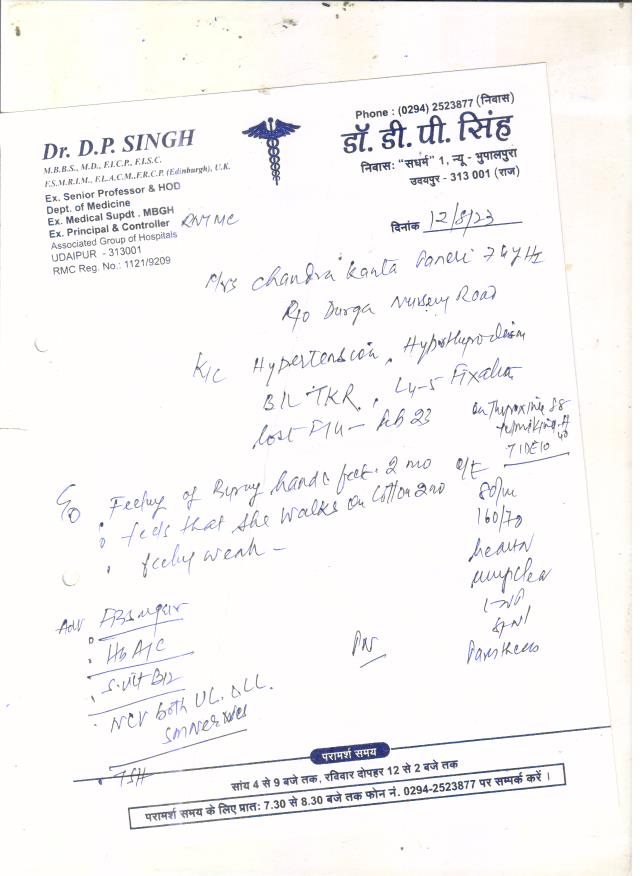 Dr. D.P. SINGH
M.B.B.S., M.D., F.I.C.P., F.I.S.C.
F.S.M.R.I.M., F.I.A.C.M., F.R.C.P. (Edinburgh), U.K.
Ex. Senior Professor & HOD
Dept. of Medicine
Ex. Medical Supdt. MBGH
Ex. Principal & Controller RNTMC
Associated Group of Hospitals
UDAIPUR - 313001
RMC Reg. No.: 1121/9209
Phone : (0294) 2523877 (निवास)
डॉ. डी. पी. सिंह
निवास: "सधर्म" 1, न्यू - भुपालपुरा
उदयपुर - 313 001 (राज)
दिनांक 12/8/23
Mrs Chandra Kanta
R/o Durga Nursery Road
K/C Hypertension,
B/L TKR, L4-5 Fixation
Feb 23
on Thyroxine 88
40
Feeling of hands feet. 2 mo
feels that she walks on Cotton 2 mo
feeling weak -
O/E
160/70
Adv
HbA1C
S. Vit B12
NCV both UL. & LL.
TSH
परामर्श समय
सांय 4 से 9 बजे तक, रविवार दोपहर 12 से 2 बजे तक
परामर्श समय के लिए प्रात: 7.30 से 8.30 बजे तक फोन नं. 0294-2523877 पर सम्पर्क करें ।